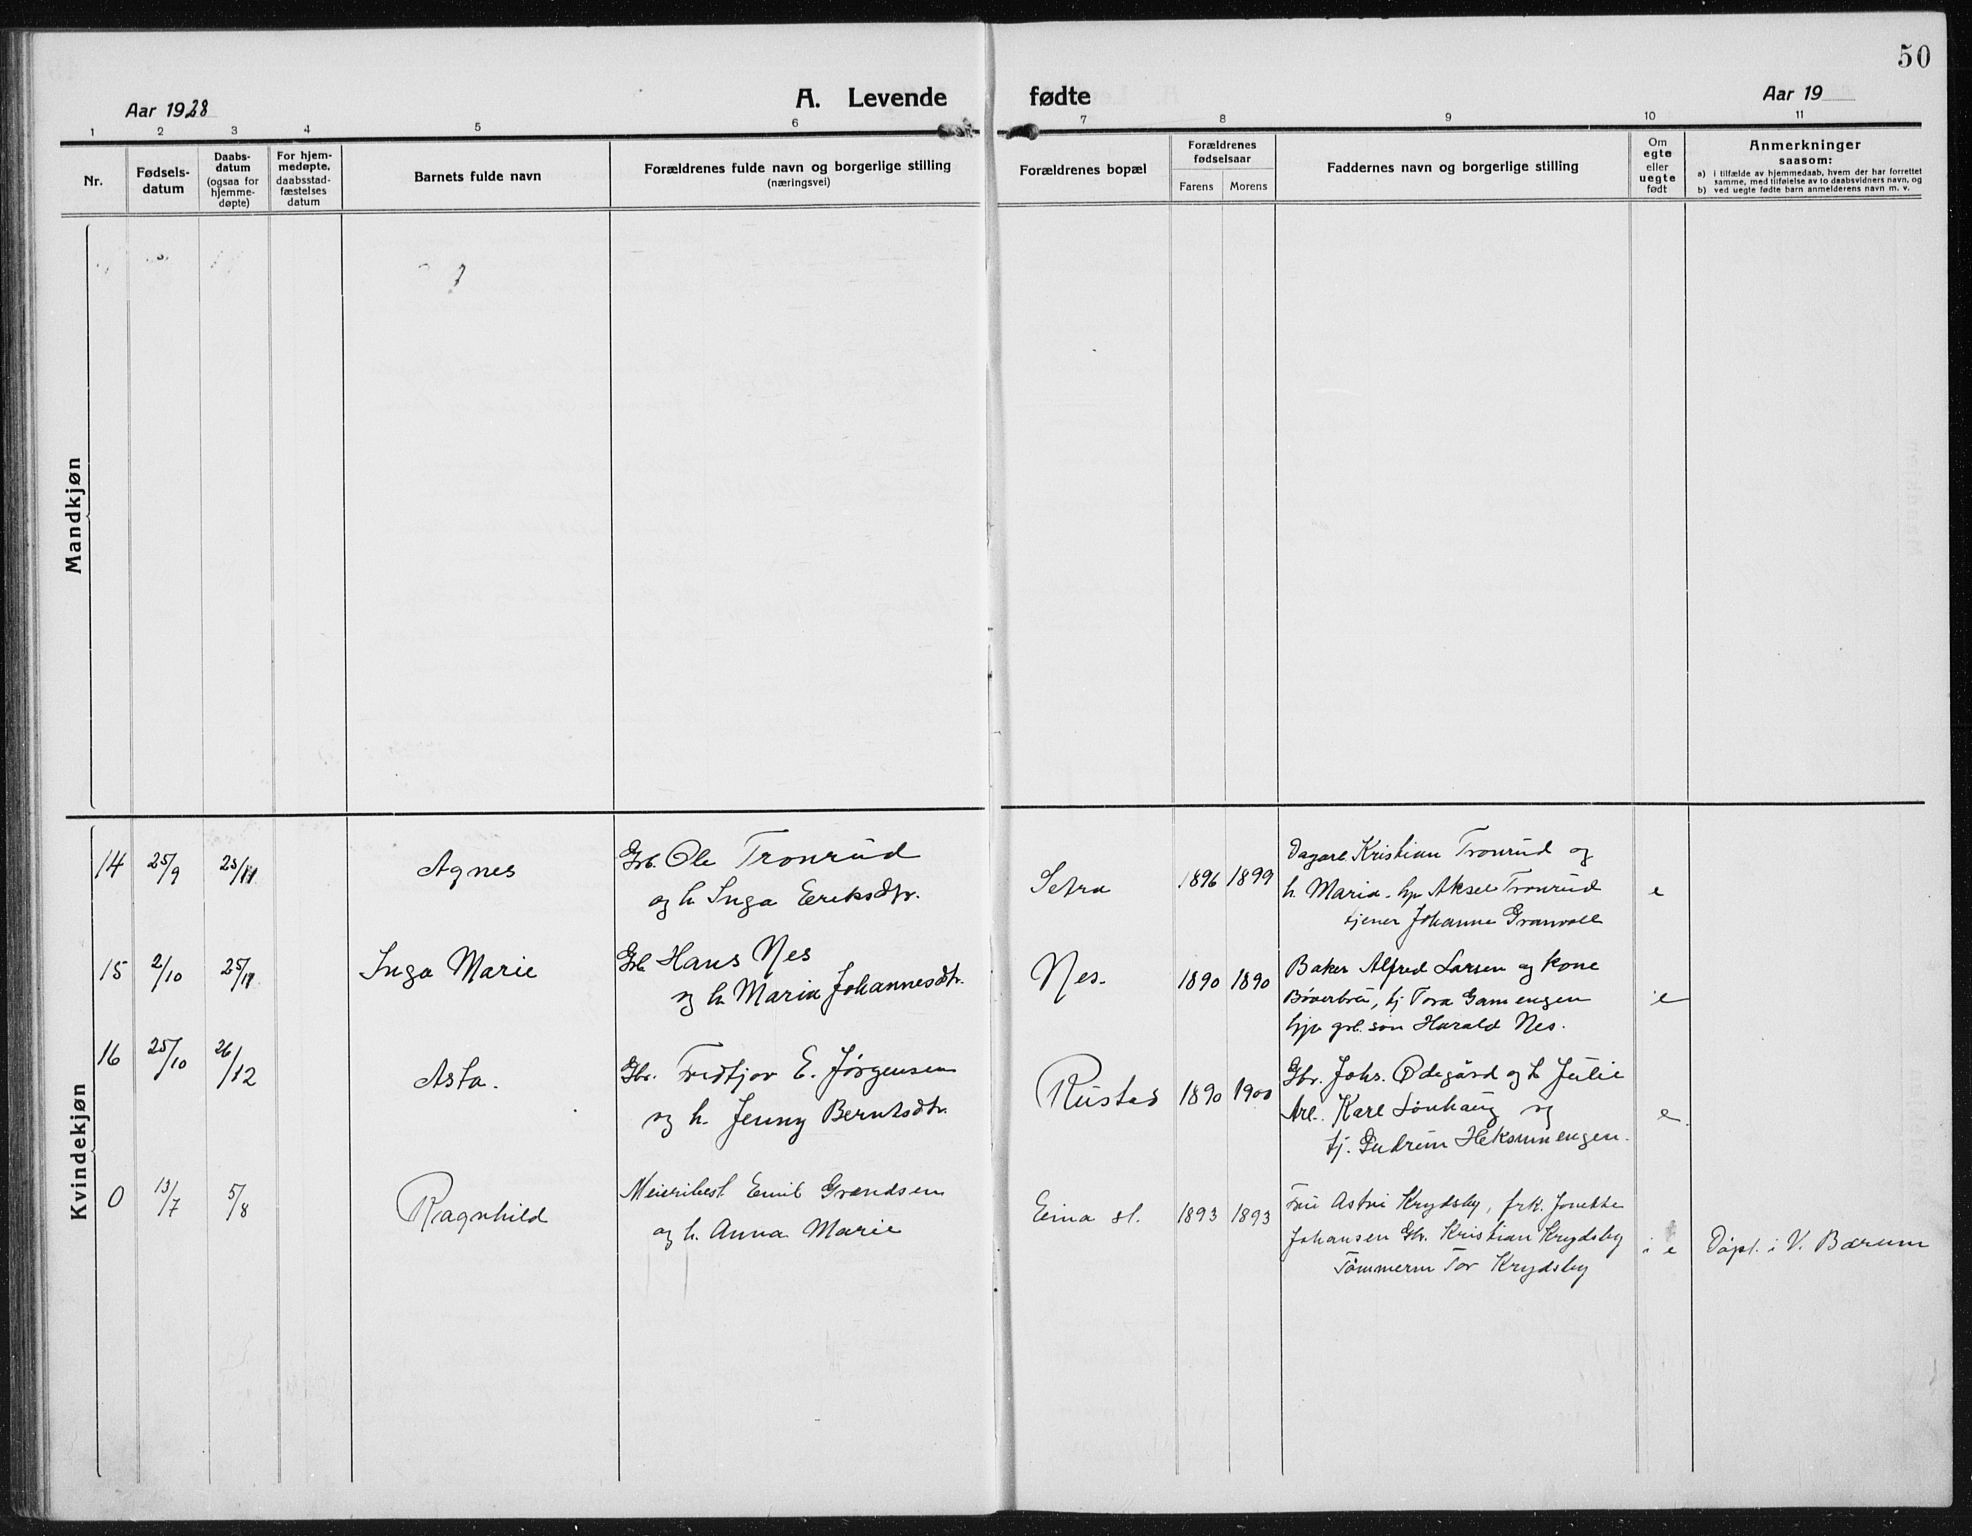 50
Aar 1928
A. Levende fødte
Aar 19
1 2 3 4 5 6 7 8 9 10 11
Nr.
Fødsels-
datum
Daabs-
datum
(ogsaa for
hjemme-
døpte)
For hjem-
medøpte,
daabsstad-
fæstelses
datum
Barnets fulde navn
Forældrenes fulde navn og borgerlige stilling
(næringsvei)
Forældrenes bopæl
Forældrenes
fødselsaar
Farens Morens
Faddernes navn og borgerlige stilling
Om
egte
eller
uegte
født
Anmerkninger
saasom:
a) i tilfælde av hjemmedaab, hvem der har forrettet
samme, med tilføielse av to daabsvidners navn, og
b) ved uegte fødte barn anmelderens navn m. v.
Mandkjøn
Kvindekjøn
14 25/9 25/11 Agnes
Grb. Ole Tronrud
og h. Inga Eriksdtr.
Setra 1896 1899
Dagarb. Kristian Tronrud og
h. Maria. hjv Aksel Tronrud
tjener Johanne Granvoll
e
15 2/10 25/11 Inga Marie
Grb. Hans Nes
og h. Maria Johannesdtr.
Nes. 1890 1890
Baker Alfred Larsen og kone
Bøverbru, tj Tora Gamengen
hjv grb. søn Harald Nes.
e
16 25/10 26/12 Asta.
Gbr. Fridtjov E. Jørgensen
og h. Jenny Berntsdtr.
Rustad 1890 1900
Gbr. Johs. Ødegård og h Julie
Arb. Karl Lønhaug og
tj. Gudrun Heksumengen.
e
0 13/7 5/8 Ragnhild
Meieribest. Emil Grendsen
og h. Anna Marie
Eina st. 1893 1893
Fru Astri Krydsby, frk. Jonette
Johansen Gbr. Kristian Krydsby
Tømmerm Tor Krydsby
e
Døpt. i V. Bærum